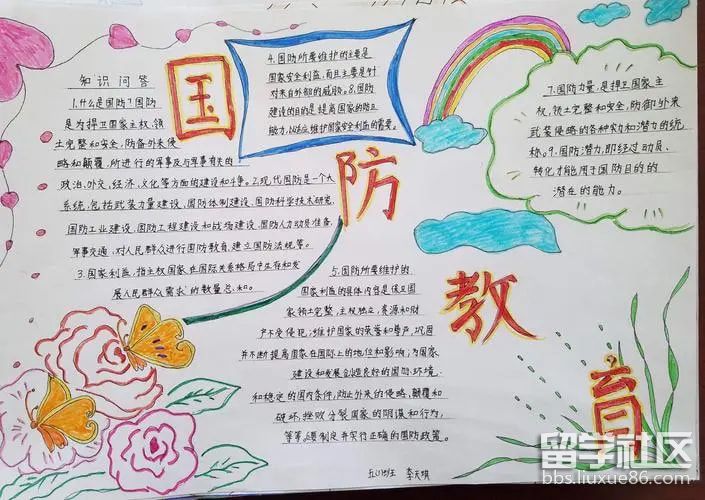 国防教育
知识问答
1.什么是国防?国防
是为捍卫国家主权、领
土完整和安全,防备外来侵
略和颠覆,所进行的军事及与军事有关的
政治、外交、经济、文化等方面的建设和斗争。2.现代国防是一个大
系统,包括武装力量建设,国防体制建设,国防科学技术研究,
国防工业建设,国防工程建设和战场建设,国防人力动员准备,
军事交通,对人民群众进行国防教育,建立国防法规等。
3.国家利益,指主权国家在国际关系格局中生存和发
展人民群众需求的数量总和。
4.国防所要维护的主要是
国家安全利益,而且主要是针
对来自外部的威胁。8.国防
建设的目的是提高国家的防卫
能力,以适应维护国家安全利益的需要。
5.国防所要维护的
国家利益的具体内容是保卫国
家领土完整,主权独立,资源和财
产不受侵犯;维护国家的荣誉和尊严,巩固
并不断提高国家在国际上的地位和影响;为国家
建设和发展创造良好的国际环境
和稳定的国内条件,防止外来的侵略,颠覆和
破坏,挫败分裂国家的阴谋和行为,
等等。制定并实行正确的国防政策。
7.国防力量,是捍卫国家主
权、领土完整和安全,防御外来
武装侵略的各种实力和潜力的统
称。9.国防潜力,即经过动员、
转化才能用于国防目的的
潜在的能力。
留学社区
bbs.liuxue86.com